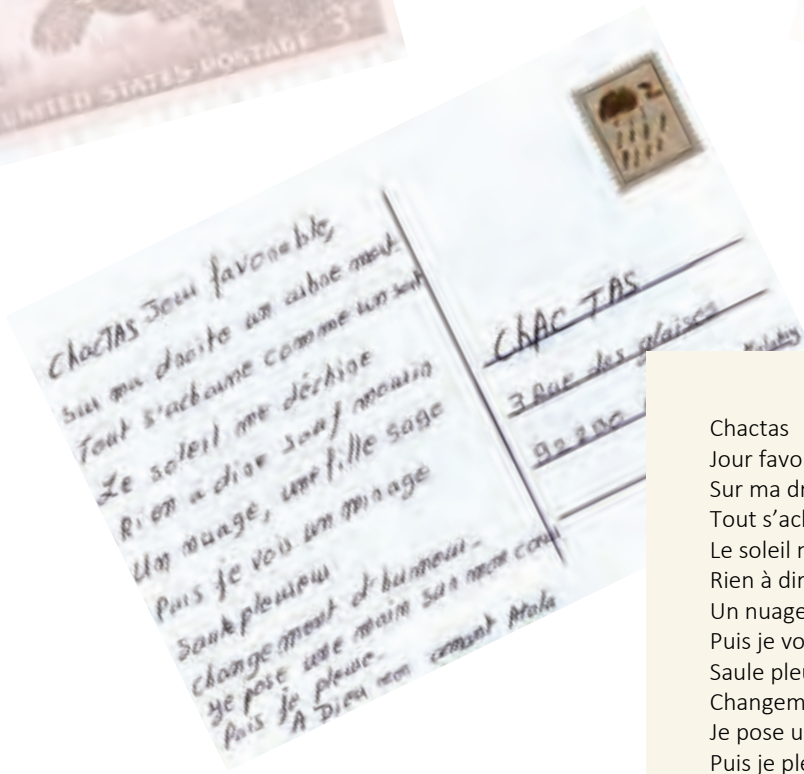 UNITED STATES POSTAGE 3
ChacTAS Jour favorable,
Sur ma droite un arbre ment
Tout s'acharne comme un
Le soleil me déchire
Rien a dire sauf mourir
Un nuage, une fille sage
Puis je vois un mirage
Saule pleureur
changement d'humeur-
je pose une main sur mon cœur
Puis je pleure.
A Dieu mon amant Atala
ChAC TAS
3 Rue des glaises
92290
Chactas
Jour favo
Sur ma dr
Tout s’ach
Le soleil m
Rien à dir
Un nuage
Puis je vo
Saule pleu
Changem
Je pose u
Puis je ple